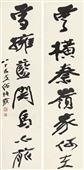 雲橫秦嶺家何在
雪擁藍關馬不前